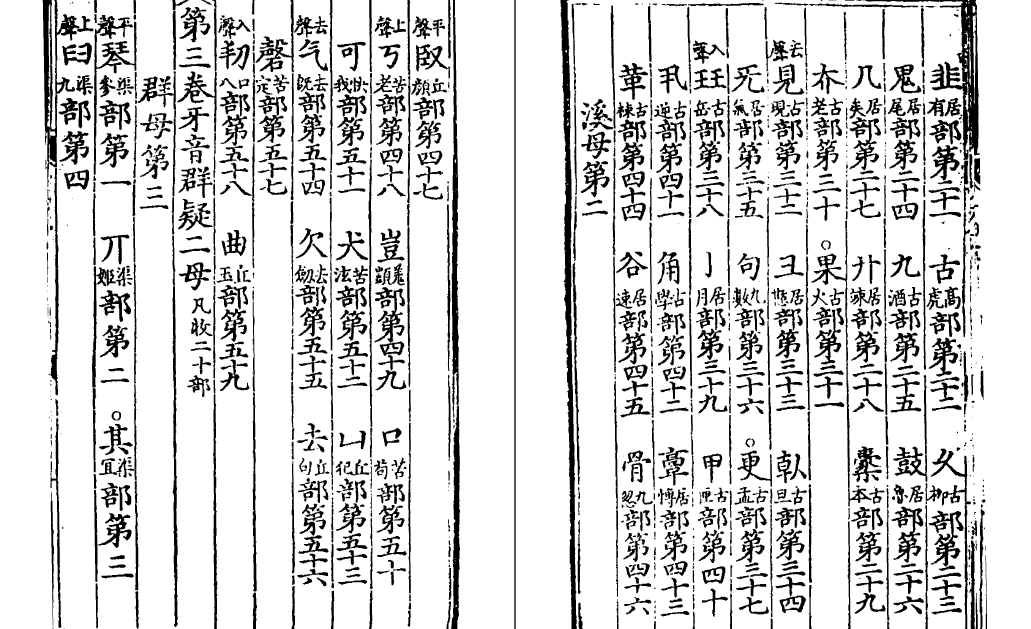 韭居有部第二十一 古高虎部第二十二 久古柳部第二十三
鬼居尾部第二十四 九古酒部第二十五 鼓居魯部第二十六
几居矣部第二十七 廾居竦部第二十八 橐古本部第二十九
夰古老部第三十 果古火部第三十一
去聲 見古現部第三十二 彑居慨部第三十三 倝古旦部第三十四
旡居氣部第三十五 句九數部第三十六 更古孟部第三十七
入聲 玨古岳部第三十八 亅居月部第三十九 甲古匣部第四十
丮古逆部第四十一 角古學部第四十二 居博部第四十三
革古核部第四十四 谷居速部第四十五 骨九忽部第四十六
溪母第二
平聲 臤丘顏部第四十七
上聲 丂苦老部第四十八 豈部第四十九 口苦苟部第五十
可我部第五十一 犬苦泫部第五十二 凵丘犯部第五十三
去聲 气去既部第五十四 欠去劒部第五十五 去丘部第五十六
磬苦定部第五十七
入聲 㓞口八部第五十八 曲丘玉部第五十九
第三卷牙音群疑二母凡收二十部
群母第三
平聲 琴渠參部第一 丌渠姬部第二 其渠宜部第三
上聲 臼渠九部第四